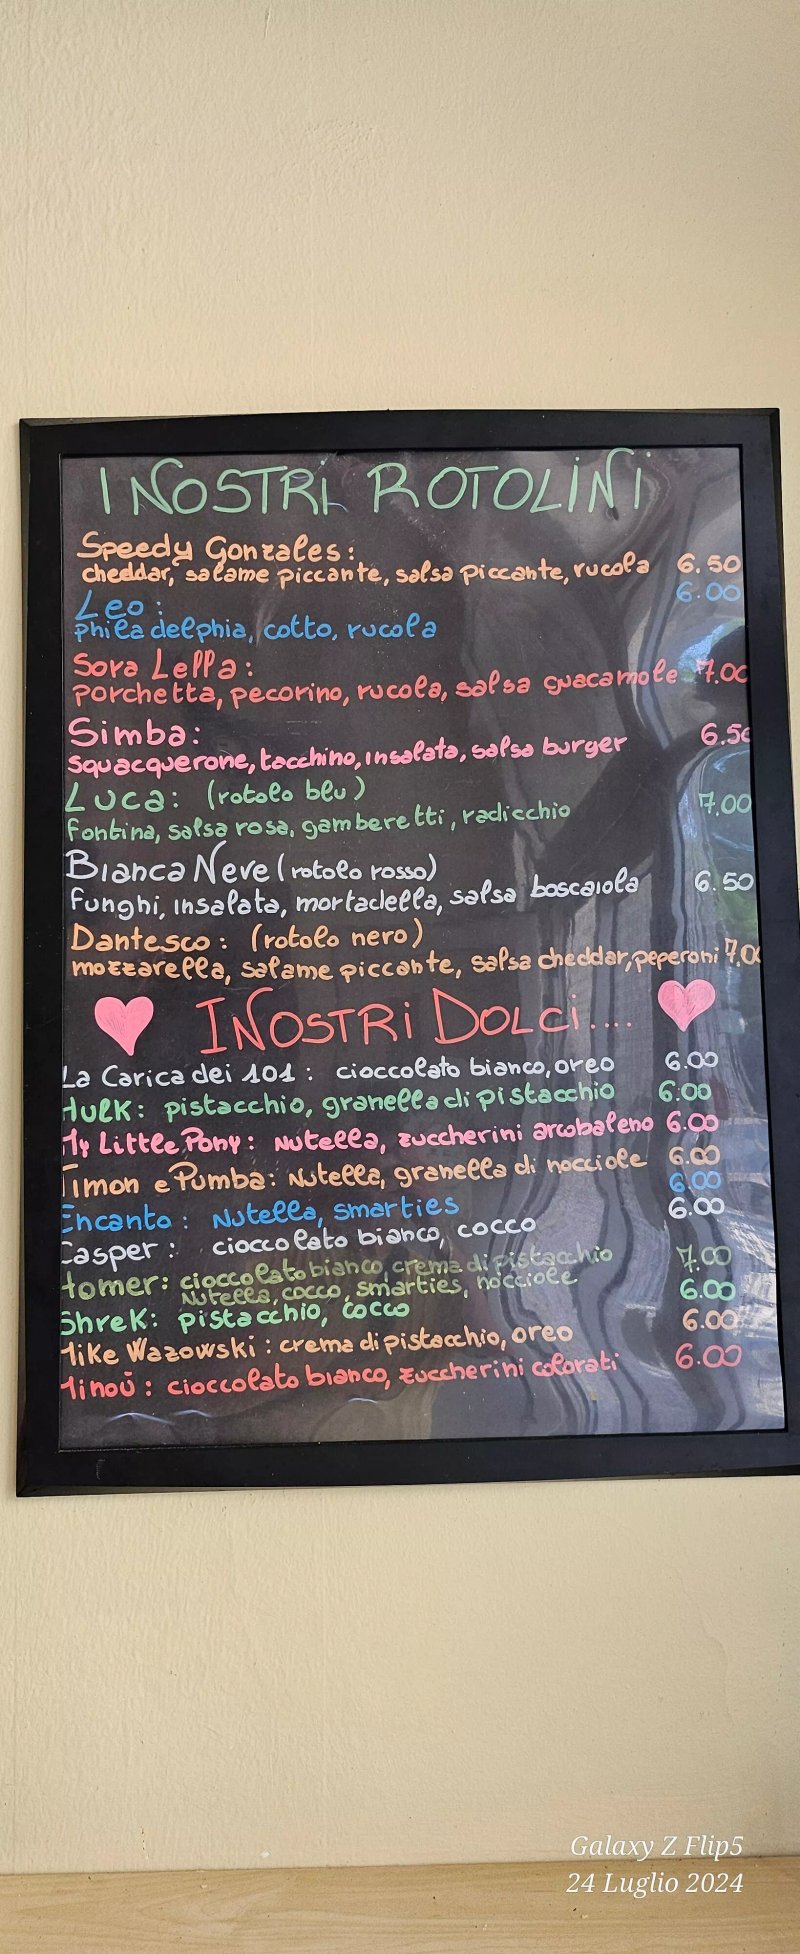 I NOSTRI ROTOLINI
Speedy Gonzales:
cheddar, salame piccante, salsa piccante, rucola 6.50
Leo: 6.00
philadelphia, cotto, rucola
Sora Lella:
porchetta, pecorino, rucola, salsa guacamole 7.00
Simba:
squacquerone, tacchino, insalata, salsa burger 6.50
Luca: (rotolo blu)
fontina, salsa rosa, gamberetti, radicchio 7.00
Bianca Neve (rotolo rosso)
funghi, insalata, mortadella, salsa boscaiola 6.50
Dantesco: (rotolo nero)
mozzarella, salame piccante, salsa cheddar, peperoni 7.00
I NOSTRI DOLCI....
La Carica dei 101: cioccolato bianco, oreo 6.00
Hulk: pistacchio, granella di pistacchio 6.00
My Little Pony: Nutella, zuccherini arcobaleno 6.00
Timon e Pumba: Nutella, granella di nocciole 6.00
Encanto: Nutella, smarties 6.00
Casper: cioccolato bianco, cocco 6.00
Homer: cioccolato bianco, crema di pistacchio 7.00
Nutella, cocco, smarties, nocciole
Shrek: pistacchio, cocco 6.00
Mike Wazowski: crema di pistacchio, oreo 6.00
Minoù: cioccolato bianco, zuccherini colorati 6.00
Galaxy Z Flip5
24 Luglio 2024